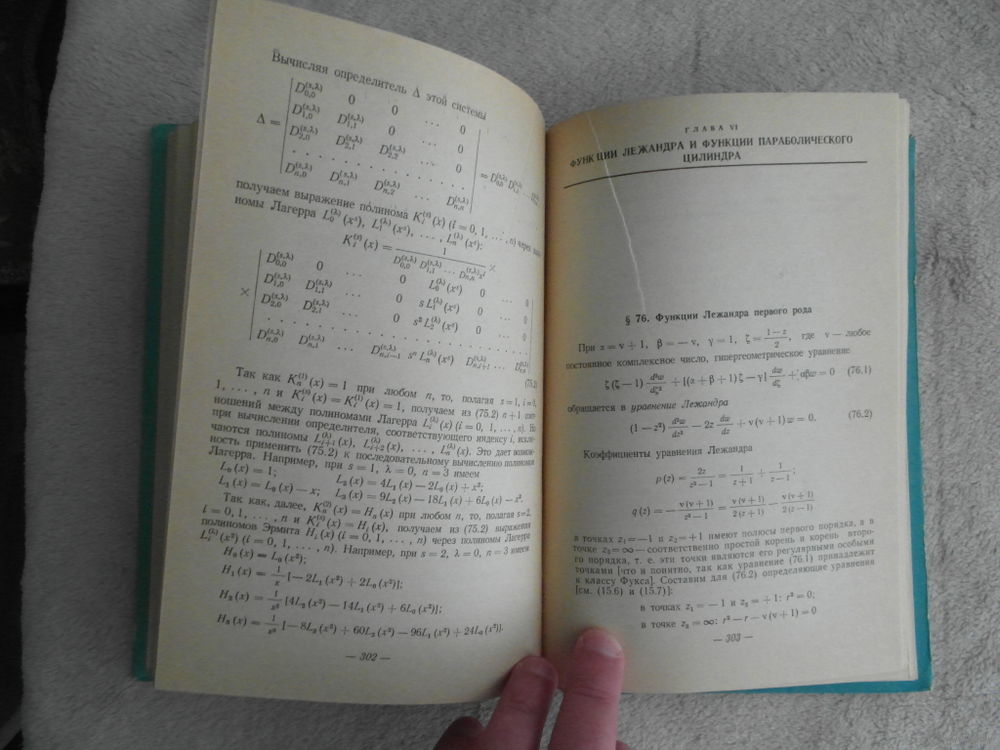 Вычисляя определитель Δ этой системы
Δ = | D₀,₀^(s,λ) 0 0 ... 0 |
| D₁,₀^(s,λ) D₁,₁^(s,λ) 0 ... 0 |
| D₂,₀^(s,λ) D₂,₁^(s,λ) D₂,₂^(s,λ) ... 0 |
| . . . . . . . . . . . . |
| Dₙ,₀^(s,λ) Dₙ,₁^(s,λ) Dₙ,₂^(s,λ) ... Dₙ,ₙ^(s,λ) |
получаем выражение полинома Kᵢ^(s)(x) (i = 0, 1, ..., n) через
номы Лагерра L₀^(λ)(xˢ), L₁^(λ)(xˢ), ..., Lₙ^(λ)(xˢ):
Kᵢ^(s)(x) = 1 / (D₀,₀^(s,λ) D₁,₁^(s,λ) ... Dₙ,ₙ^(s,λ) xⁱ) ×
× | D₀,₀^(s,λ) 0 ... 0 L₀^(λ)(xˢ) 0 ... 0 |
| D₁,₀^(s,λ) D₁,₁^(s,λ) ... 0 s L₁^(λ)(xˢ) 0 ... 0 |
| D₂,₀^(s,λ) D₂,₁^(s,λ) ... 0 s² L₂^(λ)(xˢ) 0 ... 0 |
| . . . . . . . . . . . . |
| Dₙ,₀^(s,λ) Dₙ,₁^(s,λ) ... Dₙ,ᵢ₋₁^(s,λ) sⁿ Lₙ^(λ)(xˢ) Dₙ,ᵢ₊₁^(s,λ) ... Dₙ,ₙ^(s,λ) |
(75.2)
Так как Kₙ^(1)(x) = 1 при любом n, то, полагая s = 1, i = 0,
1, ..., n и Kᵢ^(s)(x) = Kᵢ^(1)(x) = 1, получаем из (75.2) n + 1 соот-
ношений между полиномами Лагерра Lᵢ^(λ)(x) (i = 0, 1, ..., n). Но
при вычислении определителя, соответствующего индексу i, исклю-
чаются полиномы Lᵢ₊₁^(λ)(x), Lᵢ₊₂^(λ)(x), ..., Lₙ^(λ)(x). Это дает возмож-
ность применить (75.2) к последовательному вычислению полиномов
Лагерра. Например, при s = 1, λ = 0, n = 3 имеем
L₀(x) = 1; L₂(x) = 4L₁(x) − 2L₀(x) + x²;
L₁(x) = L₀(x) — x; L₃(x) = 9L₂(x) − 18L₁(x) + 6L₀(x) − x³.
Так как, далее, Kₙ^(2)(x) = Hₙ(x) при любом n, то, полагая s = 2,
i = 0, 1, ..., n и Kᵢ^(s)(x) = Hᵢ(x), получаем из (75.2) выражения
полиномов Эрмита Hᵢ(x) (i = 0, 1, ..., n) через полиномы Лагерра
Lᵢ^(λ)(x²) (i = 0, 1, ..., n). Например, при s = 2, λ = 0, n = 3 имеем
H₀(x) = L₀(x²);
H₁(x) = 1/x [— 2L₁(x²) + 2L₀(x²)];
H₂(x) = 1/x² [4L₂(x²) − 14L₁(x²) + 6L₀(x²)];
H₃(x) = 1/x³ [− 8L₃(x²) + 60L₂(x²) − 96L₁(x²) + 24L₀(x²)].
— 302 —
ГЛАВА VI
ФУНКЦИИ ЛЕЖАНДРА И ФУНКЦИИ ПАРАБОЛИЧЕСКОГО
ЦИЛИНДРА
§ 76. Функции Лежандра первого рода
При α = ν + 1, β = — ν, γ = 1, ζ = (1 − z)/2, где ν — любое
постоянное комплексное число, гипергеометрическое уравнение
ζ(ζ — 1) d²w/dζ² + [(α + β + 1) ζ — γ] dw/dζ + αβw = 0 (76.1)
обращается в уравнение Лежандра
(1 — z²) d²w/dz² − 2z dw/dz + ν(ν + 1) w = 0. (76.2)
Коэффициенты уравнения Лежандра
p(z) = 2z/(z² − 1) = 1/(z + 1) + 1/(z − 1);
q(z) = — ν(ν + 1)/(z² − 1) = ν(ν + 1)/(2(z + 1)) − ν(ν + 1)/(2(z − 1))
в точках z₁ = — 1 и z₂ = + 1 имеют полюсы первого порядка, а в
точке z₃ = ∞ — соответственно простой корень и корень второ-
го порядка, т. е. эти точки являются его регулярными особыми
точками [что и понятно, так как уравнение (76.1) принадлежит
к классу Фукса]. Составим для (76.2) определяющие уравнения
[см. (15.6) и (15.7)]:
в точках z₁ = — 1 и z₂ = + 1: r² = 0;
в точке z₃ = ∞: r² — r — ν(ν + 1) = 0
— 303 —